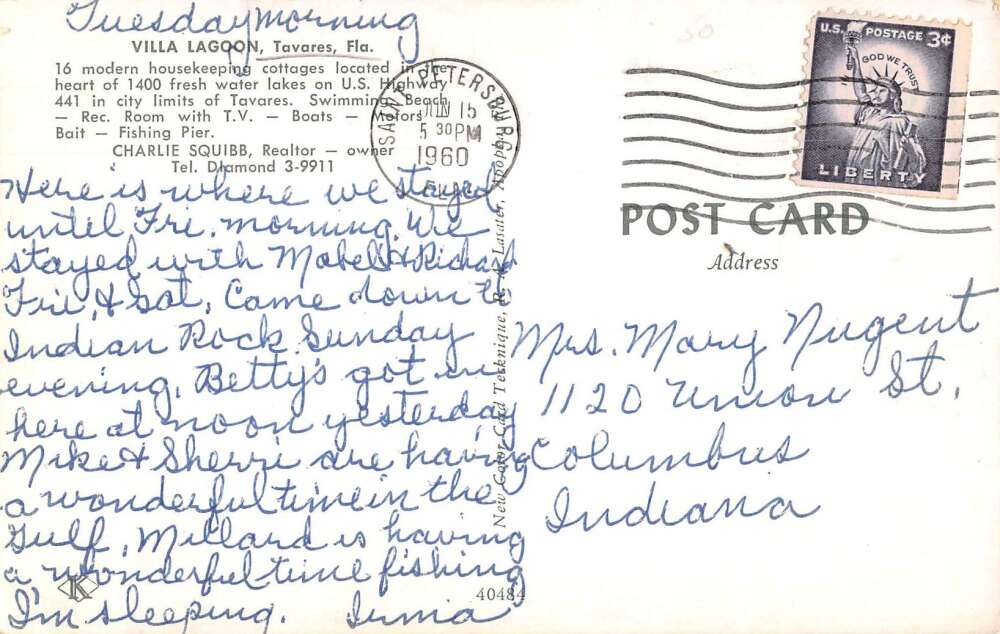 Tuesday morning
VILLA LAGOON, Tavares, Fla.
16 modern housekeeping cottages located in the
heart of 1400 fresh water lakes on U.S. Highway
441 in city limits of Tavares. Swimming Beach
— Rec. Room with T.V. — Boats — Motors
Bait — Fishing Pier.
CHARLIE SQUIBB, Realtor — owner
Tel. Diamond 3-9911
Here is where we stayed
until Fri. morning. We
stayed with Mabel & Richard
Fri, & Sat, Came down to
Indian Rock Sunday
evening. Betty's got in
here at noon yesterday
Mike & Sherri are having
a wonderful time in the
Gulf. Millard is having
a wonderful time fishing
I'm sleeping. Irma
K
SAINT PETERSBURG
JUN 15
5 30 PM
1960
FLA.
New Color Card Technique, R. A. Lasater, Apopka
40484
U.S. POSTAGE 3¢
IN GOD WE TRUST
LIBERTY
POST CARD
Address
Mrs. Mary Nugent
1120 Union St.
Columbus
Indiana
50